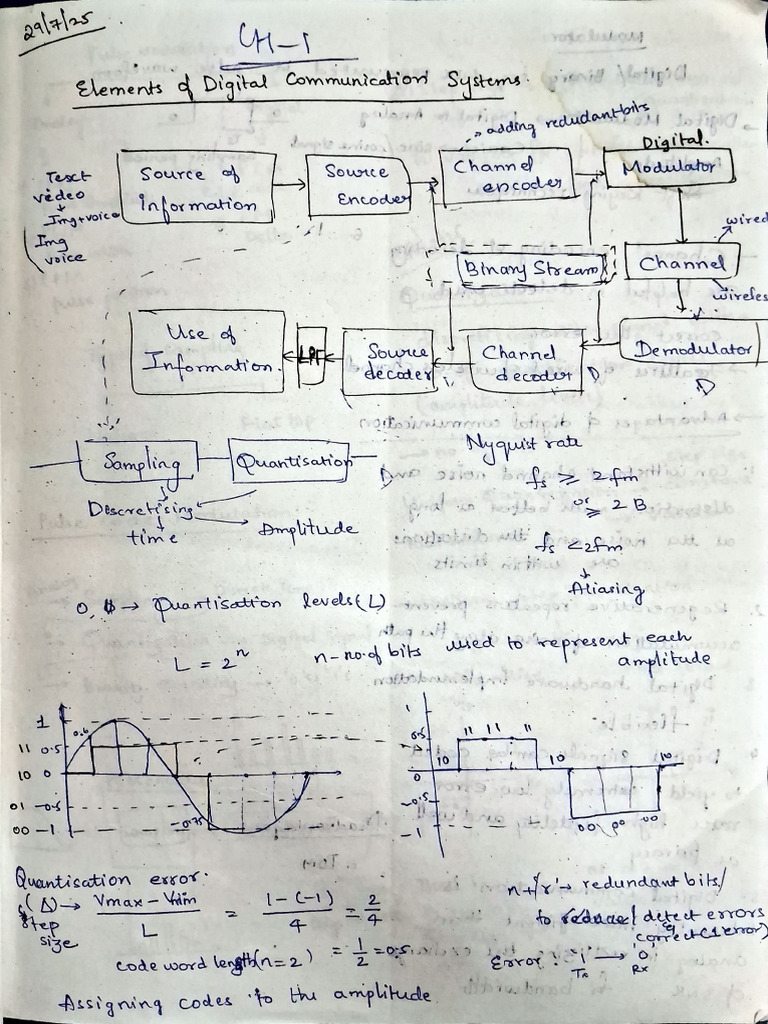 29/7/25
CH-1
Elements of Digital Communication Systems.
adding redudant bits
Text
video
Img+voice
Img
voice
Source of
Information
Source
Encoder
Channel
encoder
Digital.
Modulator
Binary Stream
Channel
wired
wireless
Use of
Information
LPF
Source
decoder
Channel
decoder
Demodulator
D
D
Sampling
Quantisation
D
Discretising
time
Amplitude
Nyquist rate
fs ≥ 2fm
or ≥ 2B
fs < 2fm
Aliasing
0, → Quantisation levels (L)
L = 2^n
n-no.of bits used to represent each
amplitude
1
0.6
11 0.5
10 0
01 -0.5
00 -1
-0.75
1
0.5
0
-0.5
-1
10 11 11 11 10 10
00 00 00
Quantisation error:
(Δ) → Vmax - Vmin / L = 1-(-1) / 4 = 2/4
step
size
= 1/2 = 0.5
code word length (n=2)
Assigning codes to the amplitude
n+'r' → redundant bits/
to reduce/detect errors
correct (1 error)
Error: 1 → 0
Tx Rx